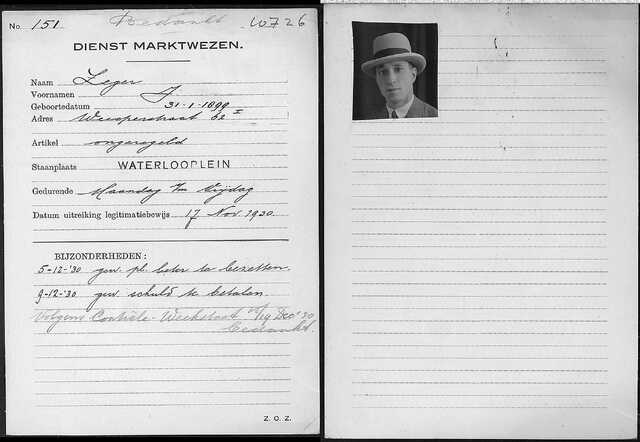 No. 151 Bedankt W726
DIENST MARKTWEZEN.
Naam Leger
Voornamen J
Geboortedatum 31-1-1899
Adres Weesperstraat 62 I
Artikel ongeregeld
Staanplaats WATERLOOPLEIN
Gedurende Maandag t/m Vrijdag
Datum uitreiking legitimatiebewijs 17 Nov. 1930
BIJZONDERHEDEN:
5-12-'30 gew. pl. beter te bezetten.
9-12-'30 gew. schuld te betalen.
Volgens Contrôle-Weekstaat 19 Dec '30
Bedankt.
Z. O. Z.